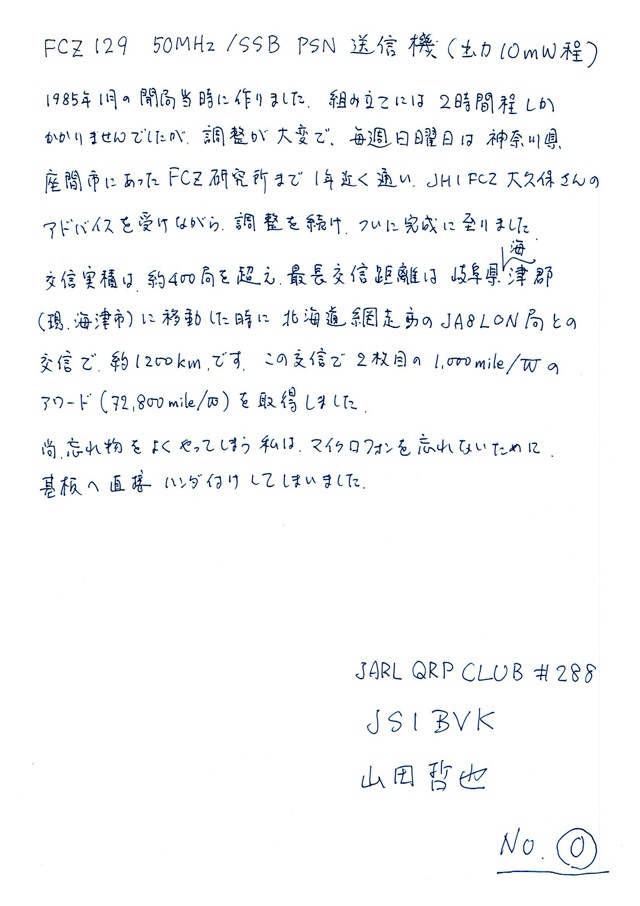 FCZ 129 50MHz/SSB PSN 送信機 (出力10mW程)
1985年1月の開局当時に作りました. 組み立てには2時間程しか
かかりませんでしたが, 調整が大変で、毎週日曜日は神奈川県
座間市にあったFCZ研究所まで1年近く通い. JH1FCZ 大久保さんの
アドバイスを受けながら. 調整を続け. ついに完成に至りました.
交信実積は. 約400局を超え. 最長交信距離は 岐阜県海津郡
(現. 海津市)に移動した時に 北海道網走市のJA8LON局との
交信で. 約1200km.です. この交信で2枚目の1,000mile/Wの
アワード(72,800mile/W)を取得しました.
尚. 忘れ物をよくやってしまう私は. マイクロフォンを忘れないために.
基板へ直接ハンダ付けしてしまいました.
JARL QRP CLUB #288
JS1BVK
山田哲也
No. 0